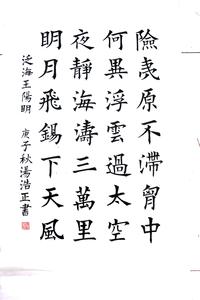 險夷原不滯胷中
何異浮雲過太空
夜靜海濤三萬里
明月飛錫下天風
泛海王陽明 庚子秋湯浩正書